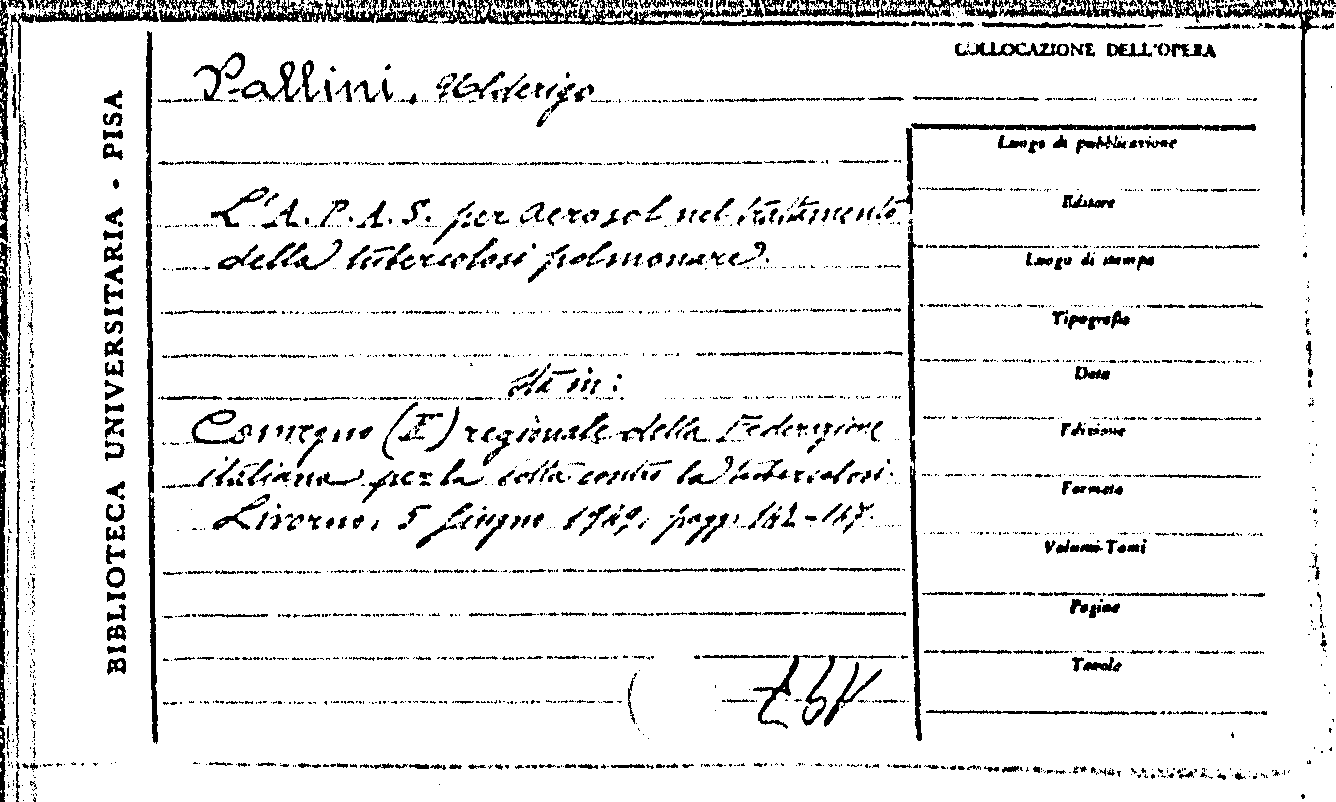 BIBLIOTECA UNIVERSITARIA - PISA
Pallini, Ulderigo
L'A.P.A.S. per aerosol nel trattamento
della tubercolosi polmonare.
sta in:
Convegno (II) regionale della Federazione
italiana per la lotta contro la tubercolosi.
Livorno, 5 giugno 1949, pagg. 142-147.
COLLOCAZIONE DELL'OPERA
Luogo di pubblicazione
Editore
Luogo di stampa
Tipografia
Data
Edizione
Formato
Volumi-Tomi
Pagine
Tavole